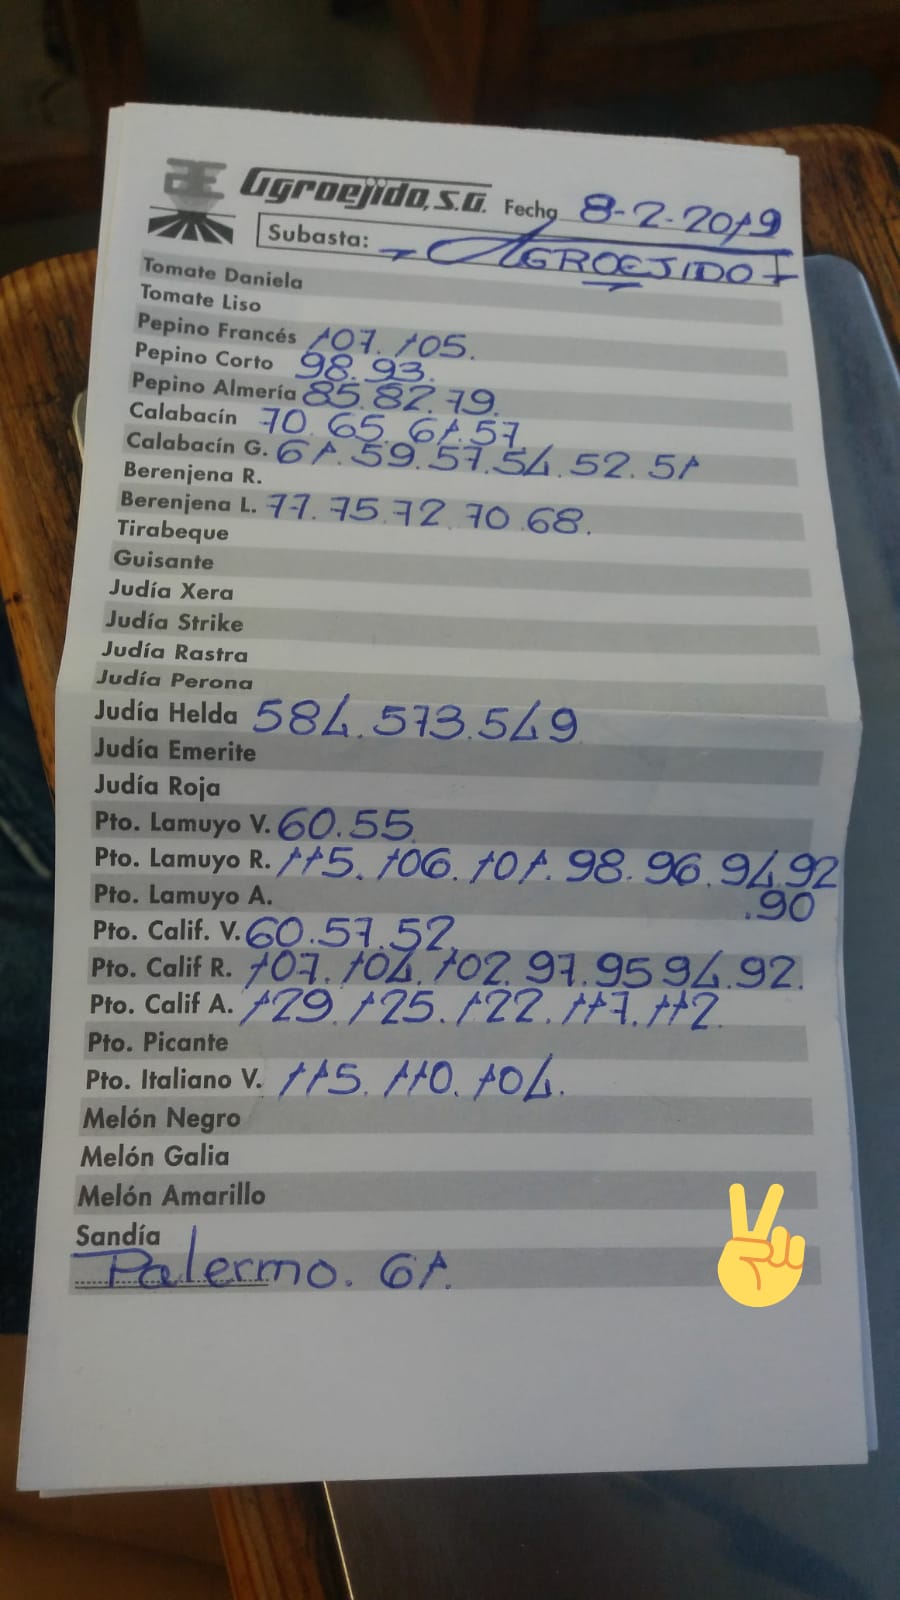 Agroejido, S.A. Fecha 8-2-2019
Subasta: - AGROEJIDO -
Tomate Daniela
Tomate Liso
Pepino Francés 107. 105.
Pepino Corto 98. 93.
Pepino Almería 85. 82. 79.
Calabacín 70. 65. 61. 57
Calabacín G. 61. 59. 57. 54. 52. 51
Berenjena R.
Berenjena L. 77. 75. 72. 70. 68.
Tirabeque
Guisante
Judía Xera
Judía Strike
Judía Rastra
Judía Perona
Judía Helda 584. 573. 549
Judía Emerite
Judía Roja
Pto. Lamuyo V. 60. 55
Pto. Lamuyo R. 115. 106. 101. 98. 96. 94. 92
Pto. Lamuyo A. .90
Pto. Calif. V. 60. 57. 52.
Pto. Calif R. 107. 104. 102. 97. 95 94. 92.
Pto. Calif A. 129. 125. 122. 117. 112.
Pto. Picante
Pto. Italiano V. 115. 110. 104.
Melón Negro
Melón Galia
Melón Amarillo
Sandía
Palermo. 61.